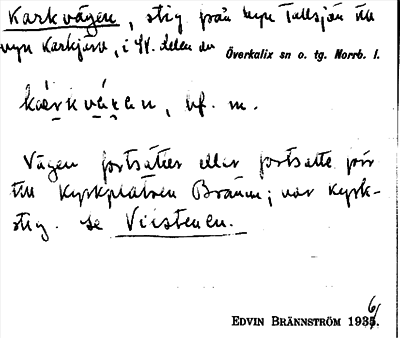 Karkvägen, stig från byn Tallsjön till
byn Karkjärv, i SV. delen av
Överkalix sn o. tg. Norrb. l.
kærkvägen, bf. m.
Vägen fortsätter eller fortsatte förr
till Kyrkplatsen Brännu; var kyrk-
stig. Se Viistenen.
EDVIN BRÄNNSTRÖM 1936.